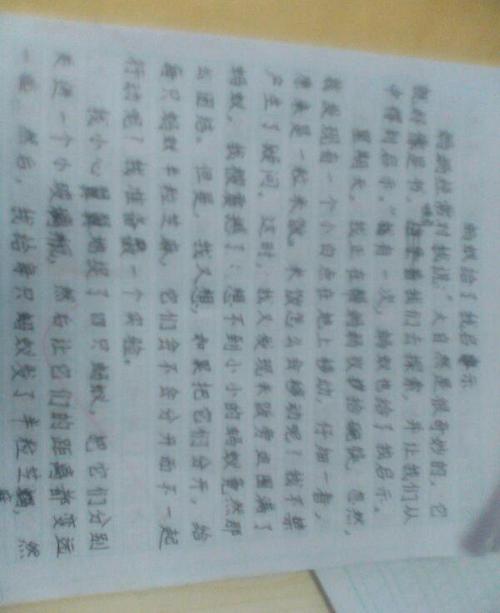 蚂蚁给了我启示
妈妈经常对我说：“大自然是很奇妙的，它
就好像是书，等着我们去探索，并让我们从
中得到启示。”有一次，蚂蚁也给了我启示。
星期天，我正在帮妈妈收拾碗筷，忽然，
我发现有一个小白点在地上移动，仔细一看，
原来是一粒米饭。米饭怎么会移动呢？我不禁
产生了疑问。这时，我又发现米饭旁边围满了
蚂蚁，我震撼了：想不到小小的蚂蚁竟然那
么团结。但是，我又想，如果把它们分开，给
每只蚂蚁半粒芝麻，它们会不会分开而不一起
行动呢？我准备做一个实验。
我小心翼翼地捉了四只蚂蚁，把它们分别
关进一个小玻璃瓶，然后让它们的距离都变远
一些，然后，我给每只蚂蚁发了半粒芝麻，然